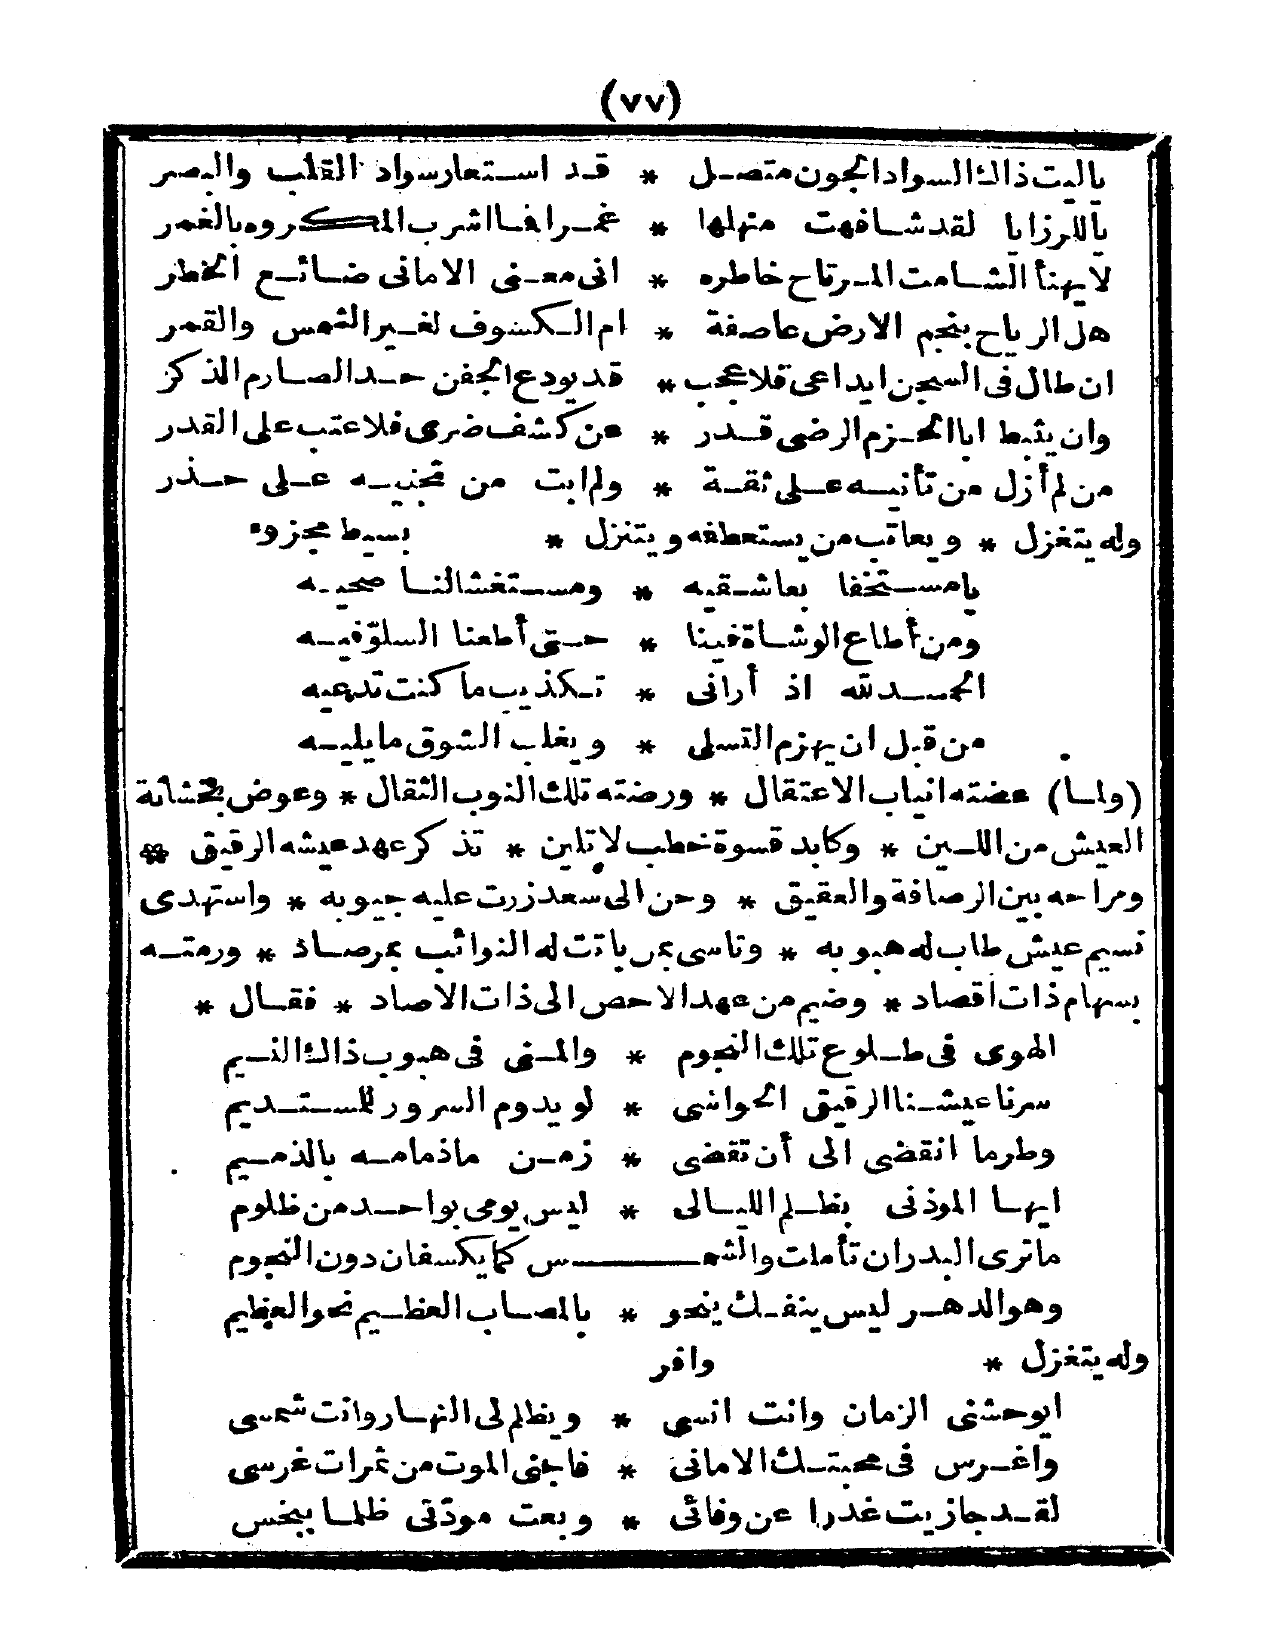 (٧٧)
ياليت ذاك السواد الجون متصل * قد استعار سواد القلب والبصر
ياللرزايا لقد شافهت منهلها * غمرا فما اشرب المكروه بالغمر
لا يهنأ الشامت المرتاح خاطره * انى معنى الامانى ضائع الخطر
هل الرياح بنجم الارض عاصفة * ام الكسوف لغير الشمس والقمر
ان طال فى السجن ايداعى فلا عجب * قد يودع الجفن حد الصارم الذكر
وان يثبط ابا الحزم الرضى قدر * عن كشف ضرى فلا عتب على القدر
من لم أزل من تأنيه على ثقة * ولم ابت من تجنيه على حذر
وله يتغزل * ويعاتب من يستعطفه ويتنزل * بسيط مجزوء
يا مستخفا بعاشقيه * ومستغشا لناصحيه
ومن أطاع الوشاة فينا * حتى أطعنا السلوّ فيه
الحمد لله اذ أرانى * تكذيب ما كنت تدعيه
من قبل ان يهزم التسلى * ويغلب الشوق ما يليه
(ولما) عضته انياب الاعتقال * ورضته تلك النوب الثقال * وعوض بخشانة
العيش من اللين * وكابد قسوة خطب لا تلين * تذكر عهد عيشه الرقيق *
ومراحه بين الرصافة والعقيق * وحن الى سعد زرت عليه جيوبه * واستهدى
نسيم عيش طاب له هبوبه * وتاسى بمن باتت له النوائب بمرصاد * ورمته
بسهام ذات اقصاد * وضيم من عهد الاحص الى ذات الاصاد * فقال *
الهوى فى طلوع تلك النجوم * والمنى فى هبوب ذاك النسيم
سرنا عيشنا الرقيق الحواشى * لو يدوم السرور للمستديم
وطر ما انقضى الى أن تقضى * زمن ما ذمامه بالذميم
ايها الموذنى بظلم الليالى * ليس يومى بواحد من ظلوم
ما ترى البدر ان تأملت والشمـــس كما يكسفان دون النجوم
وهو الدهر ليس ينفك ينحو * بالمصاب العظيم نحو العظيم
وله يتغزل * وافر
ايوحشنى الزمان وانت انسى * ويظلم لى النهار وانت شمسى
واغرس فى محبتك الامانى * فاجنى الموت من ثمرات غرسى
لقد جازيت غدرا عن وفائى * وبعت مودّتى ظلما ببخس